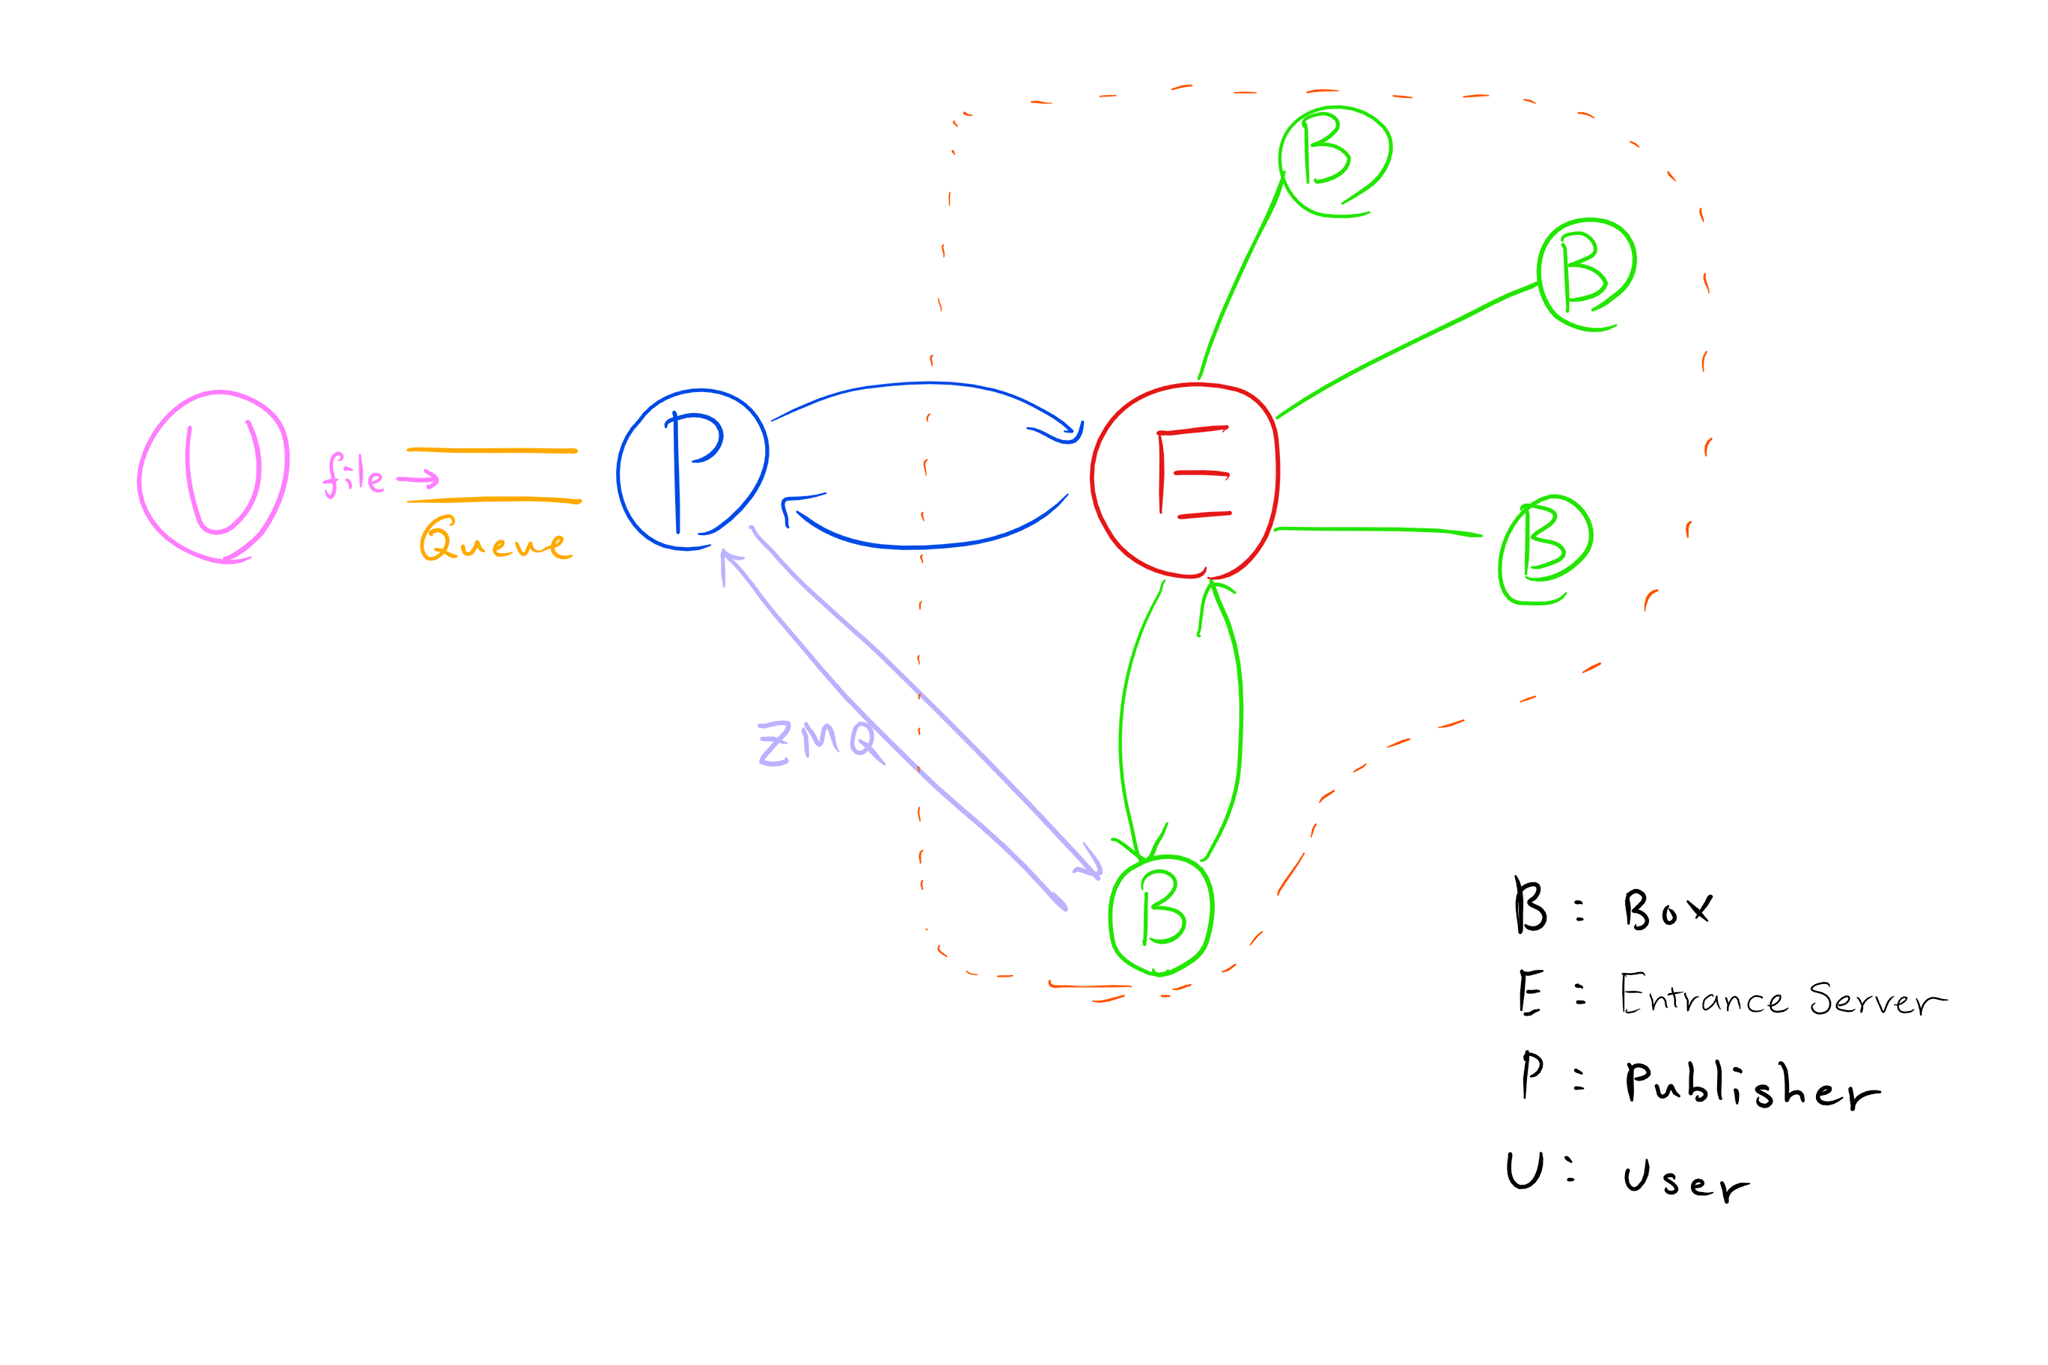 B
B
U
file →
Queue
P
E
B
ZMQ
B
B : Box
E : Entrance Server
P : Publisher
U : User